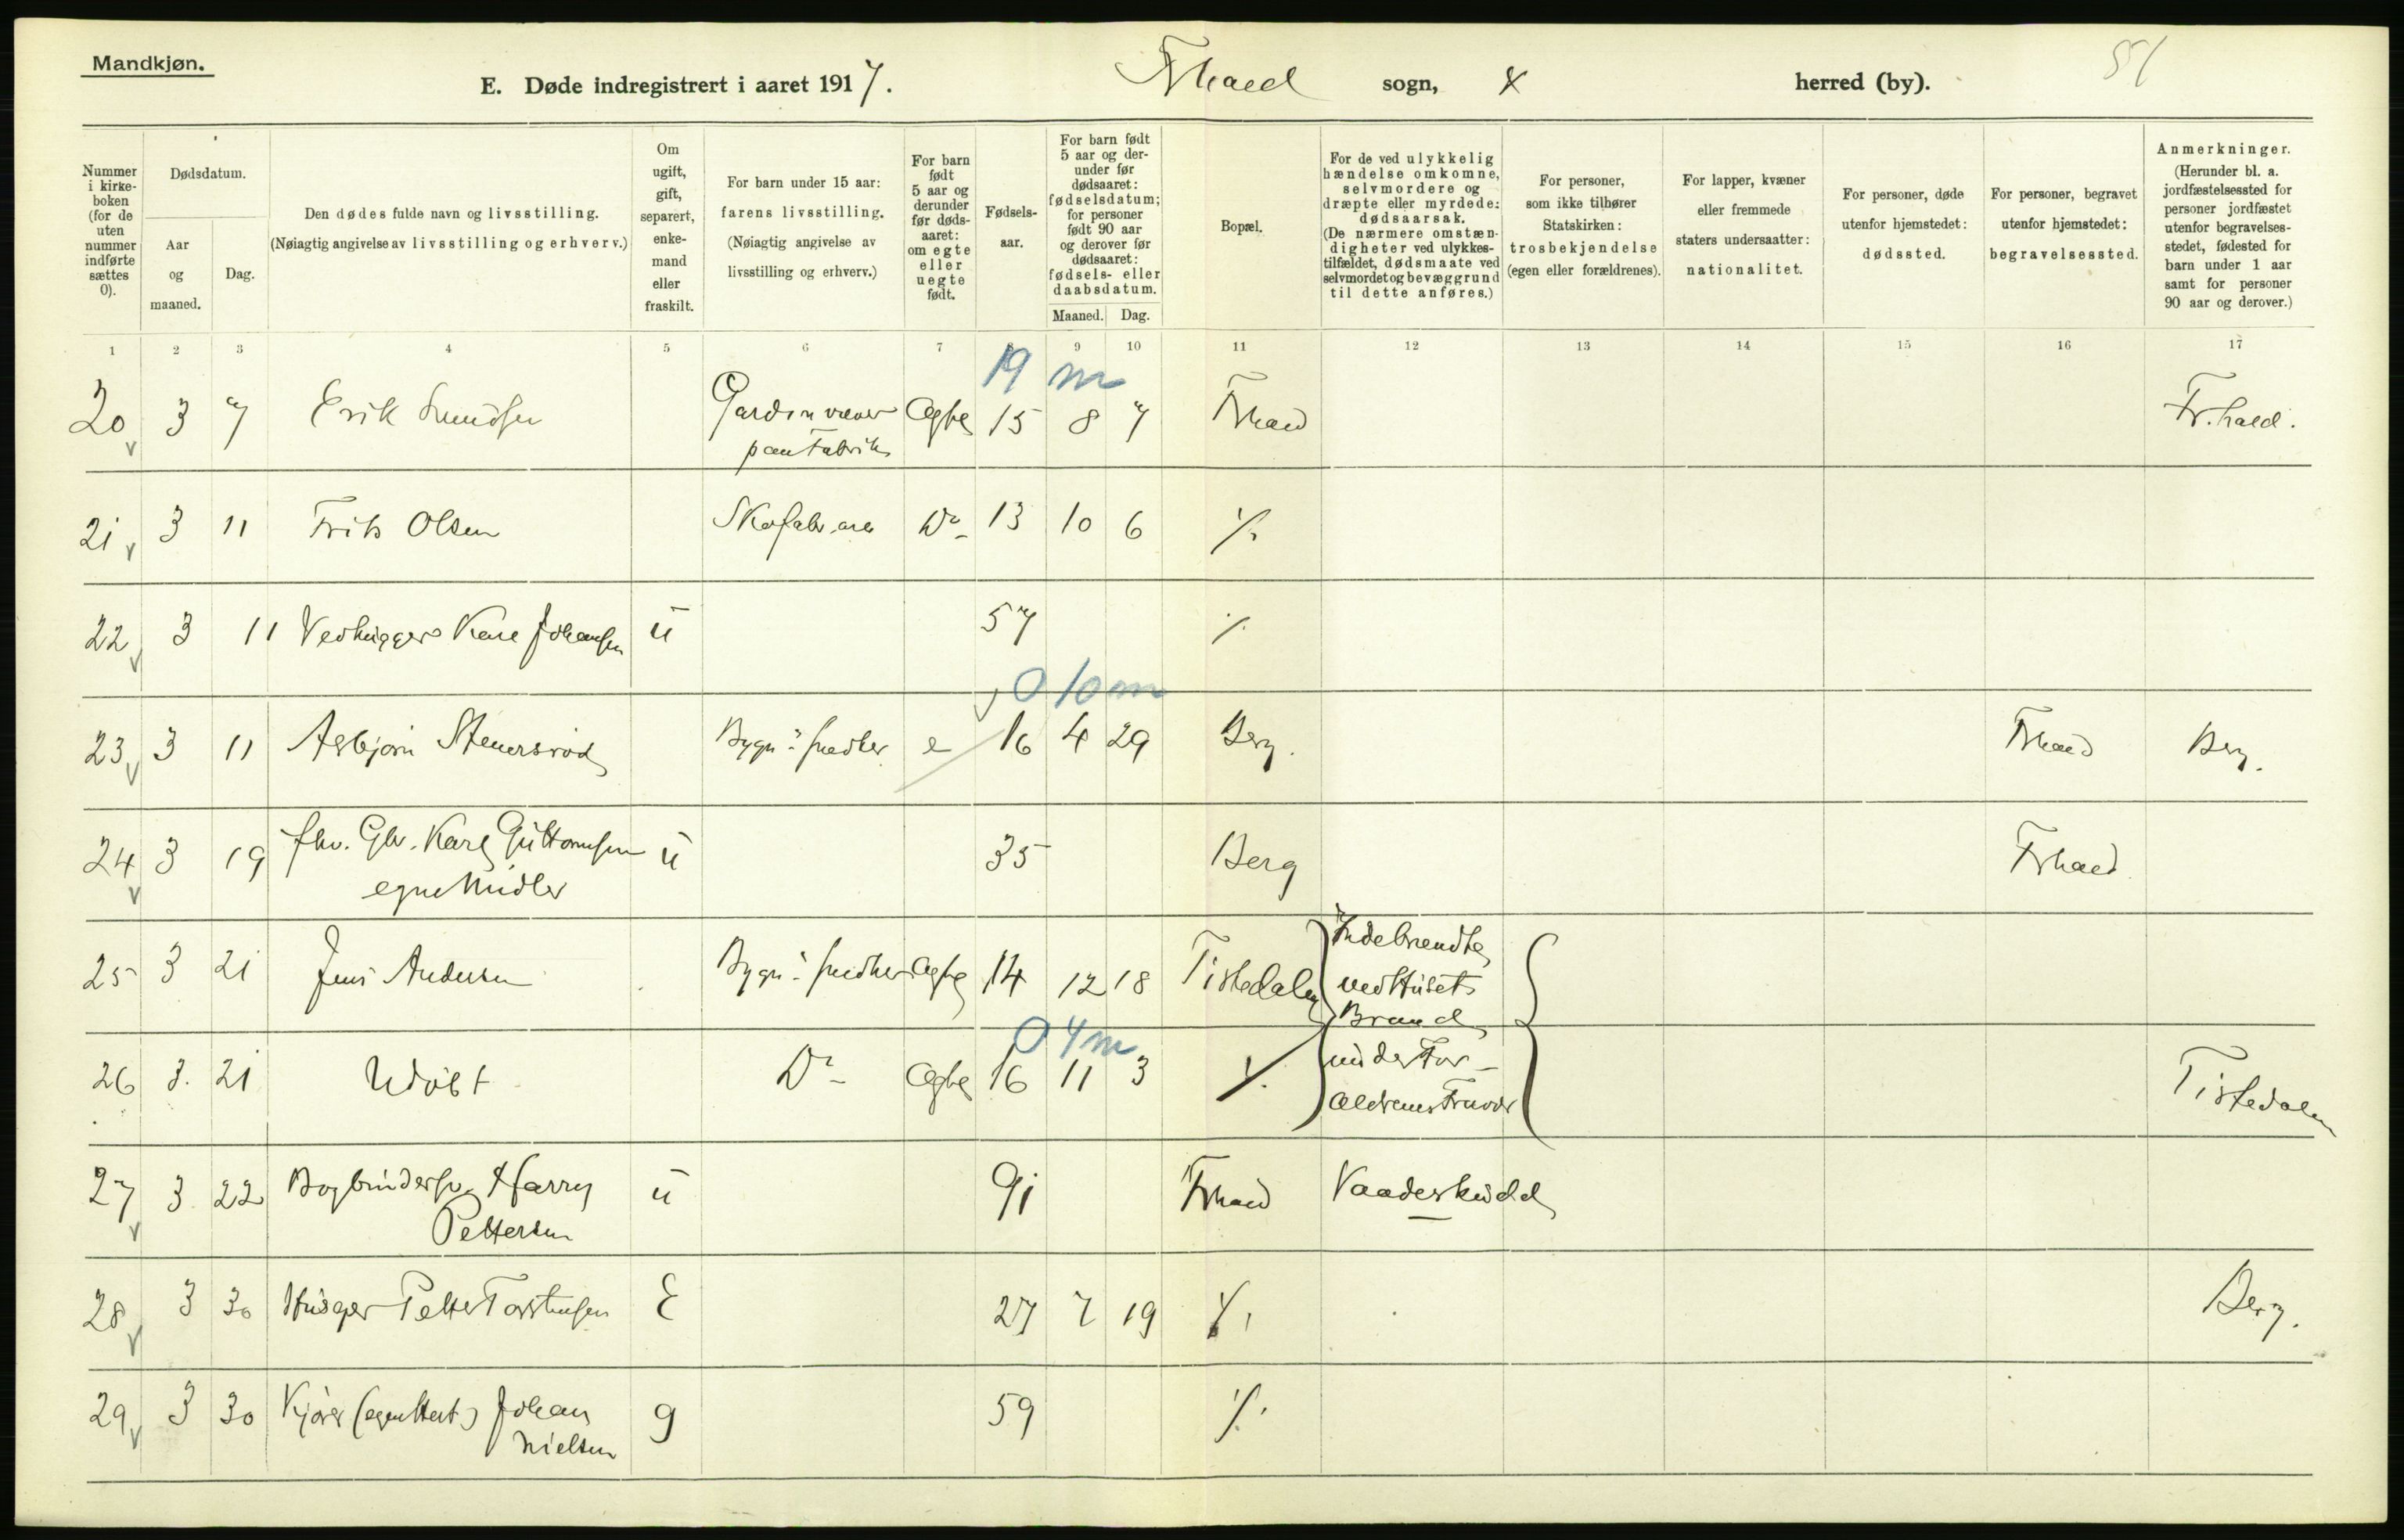 Mandkjøn.
E. Døde indregistrert i aaret 1917. Frhald sogn, herred (by). 51
Nummer i kirkeboken (for de uten nummer indførte sættes 0).
Dødsdatum.
Aar og maaned.
Dag.
Den dødes fulde navn og livsstilling.
(Nøiagtig angivelse av livsstilling og erhverv.)
Om ugift, gift, separert, enkemand eller fraskilt.
For barn under 15 aar: farens livsstilling.
(Nøiagtig angivelse av livsstilling og erhverv.)
For barn født 5 aar og derunder før dødsaaret: om egte eller uegte født.
Fødselsaar.
For barn født 5 aar og derunder før dødsaaret: fødselsdatum; for personer født 90 aar og derover før dødsaaret: fødsels- eller daabsdatum.
Maaned. Dag.
Bopæl.
For de ved ulykkelig hændelse omkomne, selvmordere og dræpte eller myrdede: dødsaarsak.
(De nærmere omstændigheter ved ulykkestilfældet, dødsmaate ved selvmordet og bevæggrund til dette anføres.)
For personer, som ikke tilhører Statskirken: trosbekjendelse (egen eller forældrenes).
For lapper, kvæner eller fremmede staters undersaatter: nationalitet.
For personer, døde utenfor hjemstedet: dødssted.
For personer, begravet utenfor hjemstedet: begravelsessted.
Anmerkninger.
(Herunder bl. a. jordfæstelsessted for personer jordfæstet utenfor begravelsesstedet, fødested for barn under 1 aar samt for personer 90 aar og derover.)
1 2 3 4 5 6 7 8 9 10 11 12 13 14 15 16 17
19 m
20 3 7 Erik Amundsen Ægte 15 8 7 Frhald Fr.hald.
21 3 11 Frits Olsen Do 13 10 6 %
22 3 11 Vedhugger Karl Johansen u 57 %
0 10 m
23 3 11 Asbjørn Stenersrød Bygn. snedker e 16 4 29 Berg. Frhald Berg.
24 3 19 fhv. Gbr. Karl Guttormsen u 35 Berg Frhald
egne Midler
25 3 21 Jens Andersen Bygn. snedker Ægte 14 12 18 Tistedalen Indebrendte
ved Husets
Brand
0 4 m
26 3. 21 Udøbt Do Ægte 16 11 3 % under For-
ældrenes Fravær Tistedalen
27 3 22 Bogbindersv. Harry u 91 Frhald Vaadeskudd
Pettersen
28 3 30 Petter Torstensen E 27 7 19 % Berg.
29 3 30 Kjører (egen Hest) Johan g 59 %
Nielsen